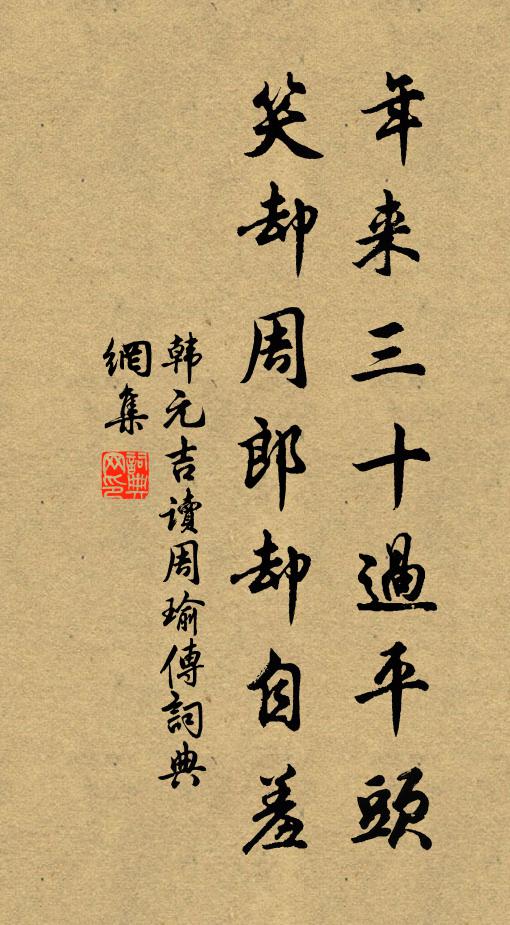 年来三十過平頭
笑却周郎却自羞
韩元吉讀周瑜傳詞典
網集
詞典
网印